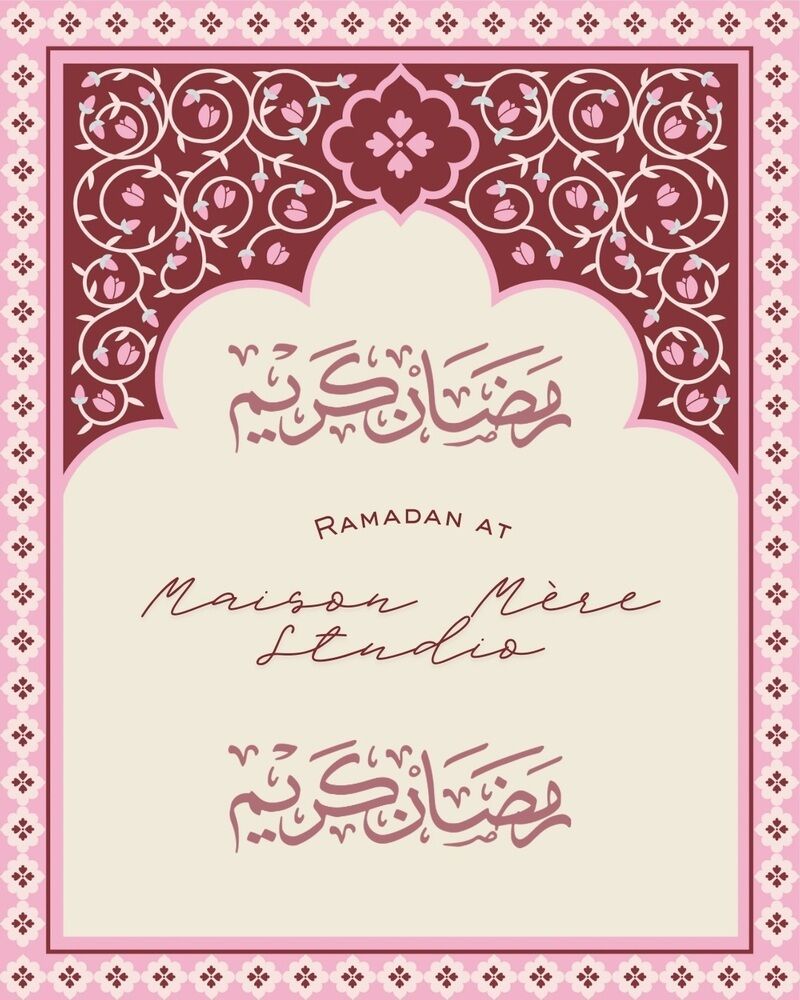 رمضان كريم
RAMADAN AT
Maison Mère
Studio
رمضان كريم